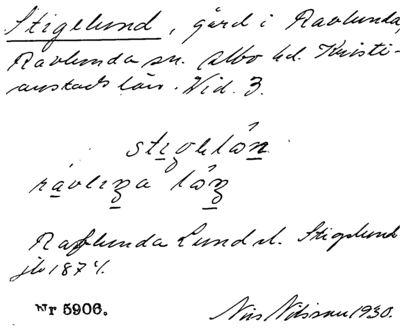 Stigelund, gård i Ravlunda,
Ravlunda sn. Albo hd. Kristi-
anstads län. Vid. 3.
Ravlunda Lund el. Stigelund
jb 1874.
Nr 5906.
Nils Nilsson 1930.